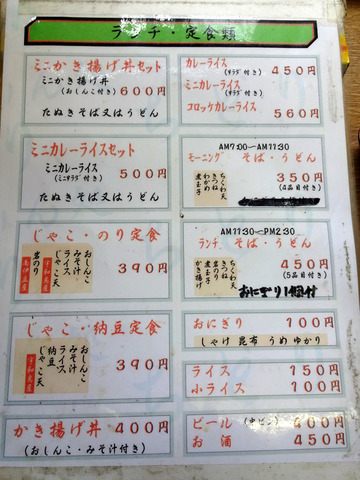 ランチ・定食類
ミニかき揚げ丼セット
ミニかき揚げ丼
(おしんこ付き) 600円
たぬきそば又はうどん
ミニカレーライスセット
ミニカレーライス
(ミニサラダ付き) 500円
たぬきそば又はうどん
じゃこ・のり定食
おしんこ
みそ汁
ライス
じゃこ天
岩のり
宇和島産
390円
じゃこ・納豆定食
おしんこ
みそ汁
ライス
納豆
じゃこ天
宇和島産
390円
かき揚げ丼 400円
(おしんこ・みそ汁付き)
カレーライス
(サラダ付き) 450円
ミニカレーライス
(サラダ付き)
コロッケカレーライス 560円
AM7:00~AM11:30
モーニング そば・うどん
ちくわ天
きつね
わかめ
煮玉子
350円
(4品目付き)
AM11:30~PM2:30
ランチ そば・うどん
ちくわ天
きつね
岩のり
煮玉子
かき揚げ
450円
(5品目付き)
おにぎり1個付
おにぎり 100円
しゃけ 昆布 うめ ゆかり
ライス 150円
小ライス 100円
ビール (中ビン) 500円
お酒 400円